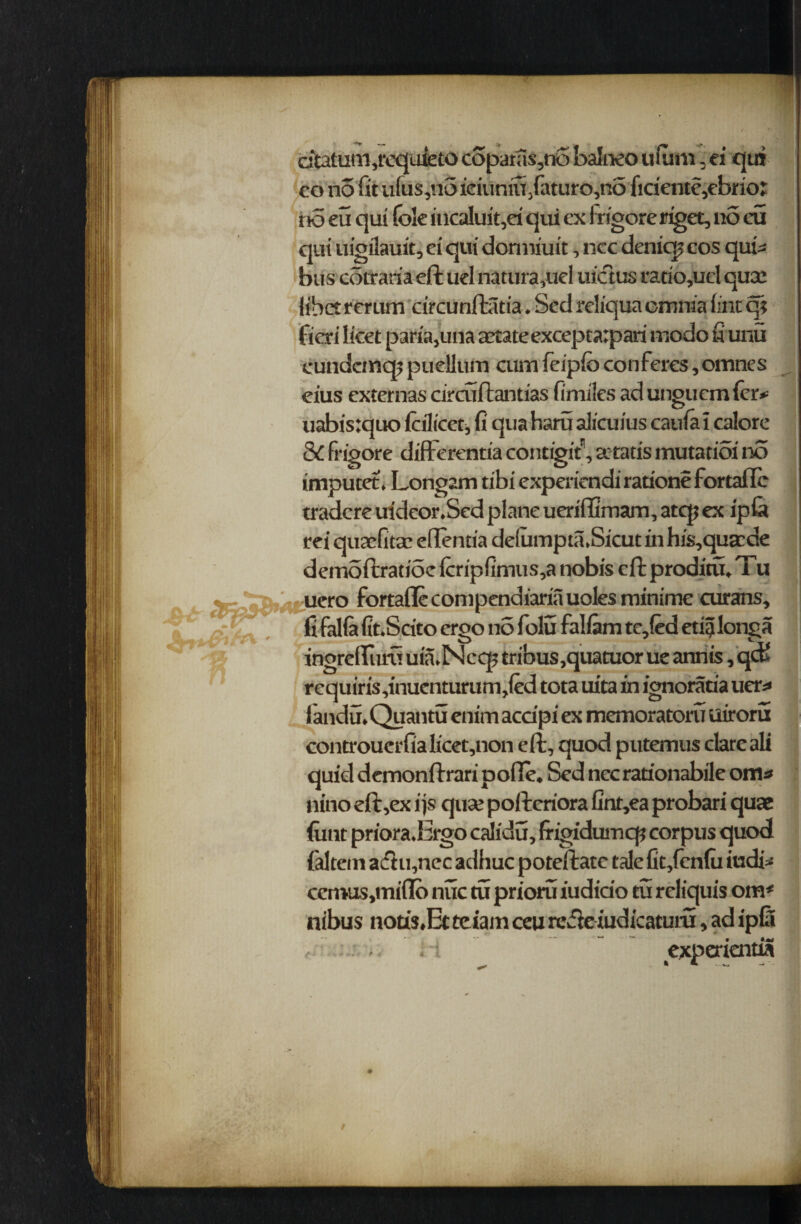 citatum,requieto cōparās,nō balneo usum, ei qui
eo nō sit usus,nō ieiuniū,saturo,nō siciente,ebrio:
nō eū qui sole incaluit,ei qui ex frigore riget, nō eū
qui uigilauit, ei qui dormiuit, nec deniqȝ eos qui⸗
bus cōtraria est uel natura,uel uictus ratio,uel quæ
libet rerum circunstātia. Sed reliqua omnia sint qȝ
fieri licet paria,una ætate excepta:pari modo si unū
eundemqȝ puellum cum seipso conferes, omnes
eius externas circūstantias similes ad unguem ser⸗
uabis:quo scilicet, si qua harū alicuius causa ī calore
& frigore differentia contigit, ætatis mutatiōi nō
imputet. Longam tibi experiendi rationē fortasse
tradere uideor.Sed plane uerissimam, atqȝ ex ipsa
rei quæsitæ essentia desumptā.Sicut in his,quæ de
demōstratiōe scripsimus,a nobis est proditū. Tu
uero fortasse compendiariā uoles minime curans,
si falsa sit.Scito ergo nō solū falsam te,sed etiā longā
ingressurū uiā.Necqȝ tribus,quatuor ue annis, qđ
requiris,inuenturum,sed tota uita in ignorātia uer⸗
sandū.Quantū enim accipi ex memoratorū uirorū
controuersia licet,non est, quod putemus clare ali
quid demonstrari posse. Sed nec rationabile om⸗
nino est,ex ijs quæ posteriora sint,ea probari quæ
sunt priora.Ergo calidū, frigidumqȝ corpus quod
saltem actu,nec adhuc potestate tale sit,sensu iudi⸗
cemus,misso nūc tū priorū iudicio tū reliquis om⸗
nibus notis.Et te iam ceu recte iudicaturū, ad ipsā
experientiā